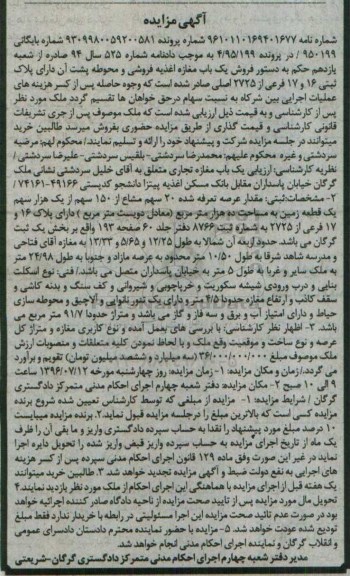 آگهی مزایده
شماره نامه ۹۶۱۰۱۱۰۱۶۹۴۰۱۶۷۷ شماره پرونده ۹۳۰۹۹۸۰۰۵۹۲۰۰۵۸۱ شماره بایگانی
۹۵۰۱۹۹ / در پرونده ۴/۹۵/۱۹۹ به موجب دادنامه شماره ۵۲۵ سال ۹۴ صادره از شعبه
یازدهم حکم به دستور فروش یک باب مغازه اغذیه فروشی و محوطه پشت آن دارای پلاک
ثبتی ۱۶ و ۱۷ فرعی از ۲۷۲۵ اصلی صادر شده است که وجوه حاصله پس از کسر هزینه های
عملیات اجرایی بین شرکاء به نسبت سهام درحق خواهان ها تقسیم گردد ملک مورد نظر
پس از کارشناسی و به قیمت ذیل ارزیابی شده است که ملک موصوف پس از جری تشریفات
قانونی کارشناسی و قیمت گذاری از طریق مزایده حضوری بفروش میرسد طالبین خرید
میتوانند در جلسه مزایده شرکت و پیشنهاد خود را ارائه و تسلیم نمایند/ محکوم لهم: مرضیه
سردشتی و غیره محکوم علیهم: محمدرضا سردشتی-بلقیس سردشتی-علیرضا سردشتی /
نظریه کارشناسی: ارزیابی یک باب مغازه تجاری متعلق به آقای خلیل سردشتی نشانی ملک
گرگان خیابان پاسداران مقابل بانک مسکن اغذیه پیتزا دانشجو کدپستی ۴۹۱۶۶-۷۴۱۶۱ /
۲-مشخصات ثبتی: مقدار عرصه تعرفه شده ۲۰ سهم مشاع از ۱۵۰ سهم از یک هزار سهم
یک قطعه زمین به مساحت ده هزار متر مربع (معادل دویست متر مربع) دارای پلاک ۱۶ و
۱۷ فرعی از ۲۷۲۵ به شماره ثبت ۸۷۶۶ دفتر جلد ۶۰ صفحه ۱۹۳ واقع بر بخش یک ثبت
گرگان می باشد. حدود اربعه آن شمالا به طول ۱۲/۲۵ و ۵/۶۵ و ۱۳/۳۳ به مغازه آقای فتاحی
و مدرسه شاهد شرقا به طول ۱۰/۵۰ متر محدود به عرصه مازاد و جنوبا به طول ۲۴/۹۸ متر
به ملک سایر و غربا به طول ۵ متر به خیابان پاسداران متصل می باشد./ فنی: نوع اسکلت
بنایی و درب ورودی شیشه سکوریت و خرپاچوبی و شیروانی و کف سنگ و بدنه کاشی و
سقف کاذب و ارتفاع مغازه حدودا ۴/۵ متر و دارای یک تنور نانوایی و آلاچیق و محوطه سازی
حیاط و دارای امتیاز آب و برق و سه فاز و گاز می باشد و متراژ حدودا ۹۱/۷ متر مربع می
باشد. ۳- اظهار نظر کارشناسی: با بررسی های بعمل آمده و نوع کاربری مغازه و متراژ کل
عرصه و نوع ساخت و موقعیت وقع ملک و با لحاظ نمودن کلیه متعلقات و منصوبات ارزش
ملک موصوف مبلغ ۳۶/۰۰۰/۰۰۰/۰۰۰ (سه میلیارد و ششصد میلیون تومان) تقویم و برآورد
می گردد./ زمان و مکان مزایده: ۱- زمان مزایده: روز چهارشنبه مورخه ۱۳۹۶/۰۷/۱۲ ساعت
۹ الی ۱۰ صبح ۲- مکان مزایده: دفتر شعبه چهارم اجرای احکام مدنی متمرکز دادگستری
گرگان / شرایط مزایده: ۱- مزایده از مبلغی که توسط کارشناس تعیین شده شروع برنده
مزایده کسی است که بالاترین مبلغ را درجلسه مزایده قبول نماید ۲. برنده مزایده میبایست
۱۰ درصد مبلغ مورد پیشنهاد را نقدا به حساب سپرده دادگستری واریز و ما بقی آن را ظرف
یک ماه از تاریخ اجرای مزایده به حساب سپرده واریز قبض واریز شده را تحویل دایره اجرا
نماید در غیر این صورت وفق ماده ۱۲۹ قانون اجرای احکام مدنی سپرده پس از کسر هزینه
های اجرایی به نفع دولت ضبط و آگهی مزایده تجدید خواهد شد. ۳. طالبین خرید میتوانند
یک هفته قبل از اجرای مزایده با هماهنگی این اجرای احکام از ملک مورد نظر بازدید نمایند. ۴
تحویل مال مورد مزایده پس از تایید صحت مزایده از ناحیه دادگاه صادر کننده اجرائیه خواهد
بود در صورت عدم تائید صحت مزایده این اجرا مسئولیتی در رابطه با خریدار ندارد فقط مبلغ
تودیع شده عودت خواهد شد. ۵-مزایده با حضور نماینده محترم دادستان دادسرای عمومی
و انقلاب گرگان و نماینده اجرای احکام مدنی انجام خواهد شد.
مدیر دفتر شعبه چهارم اجرای احکام مدنی متمرکز دادگستری گرگان-شریعتی